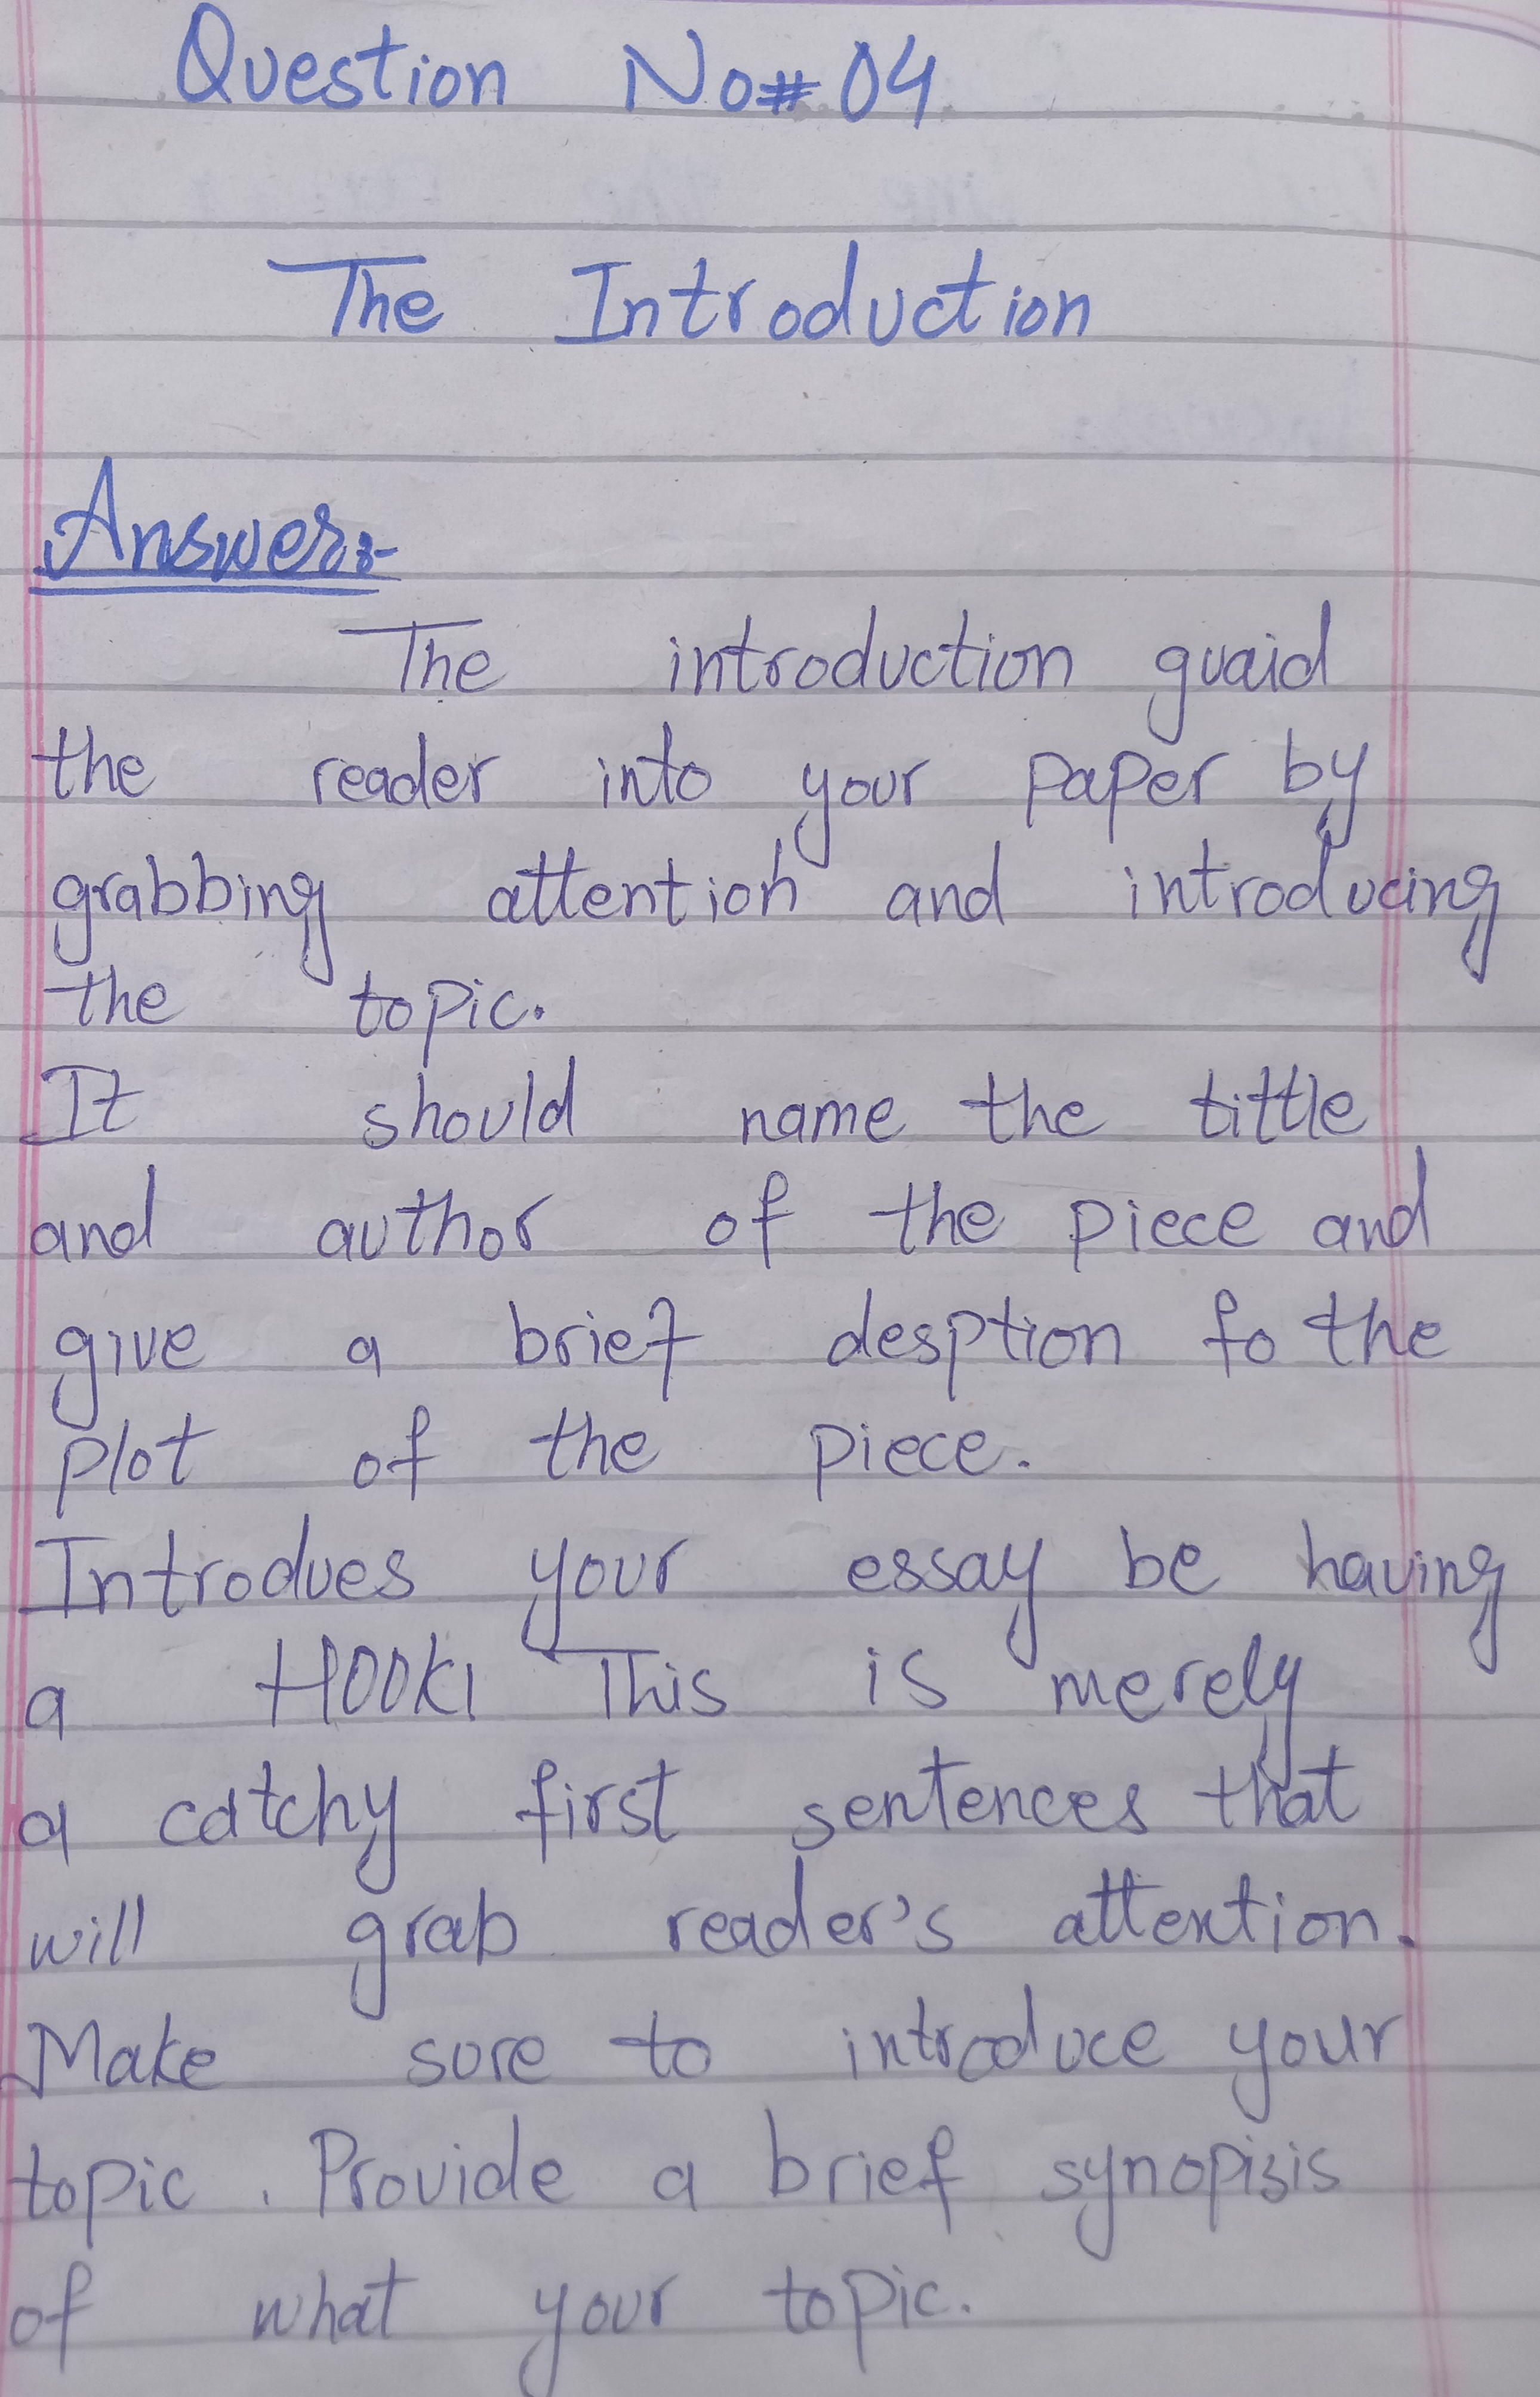 Question No# 04
The Introduction
Answer:-
The introduction guaid
the reader into your paper by
grabbing attention and introducing
the topic.
It should name the tittle
and author of the piece and
give a brief desption fo the
plot of the piece.
Introdues your essay be having
a HOOK! This is merely
a catchy first sentences that
will grab reader's attention.
Make sure to introduce your
topic. Provide a brief synopisis
of what your topic.